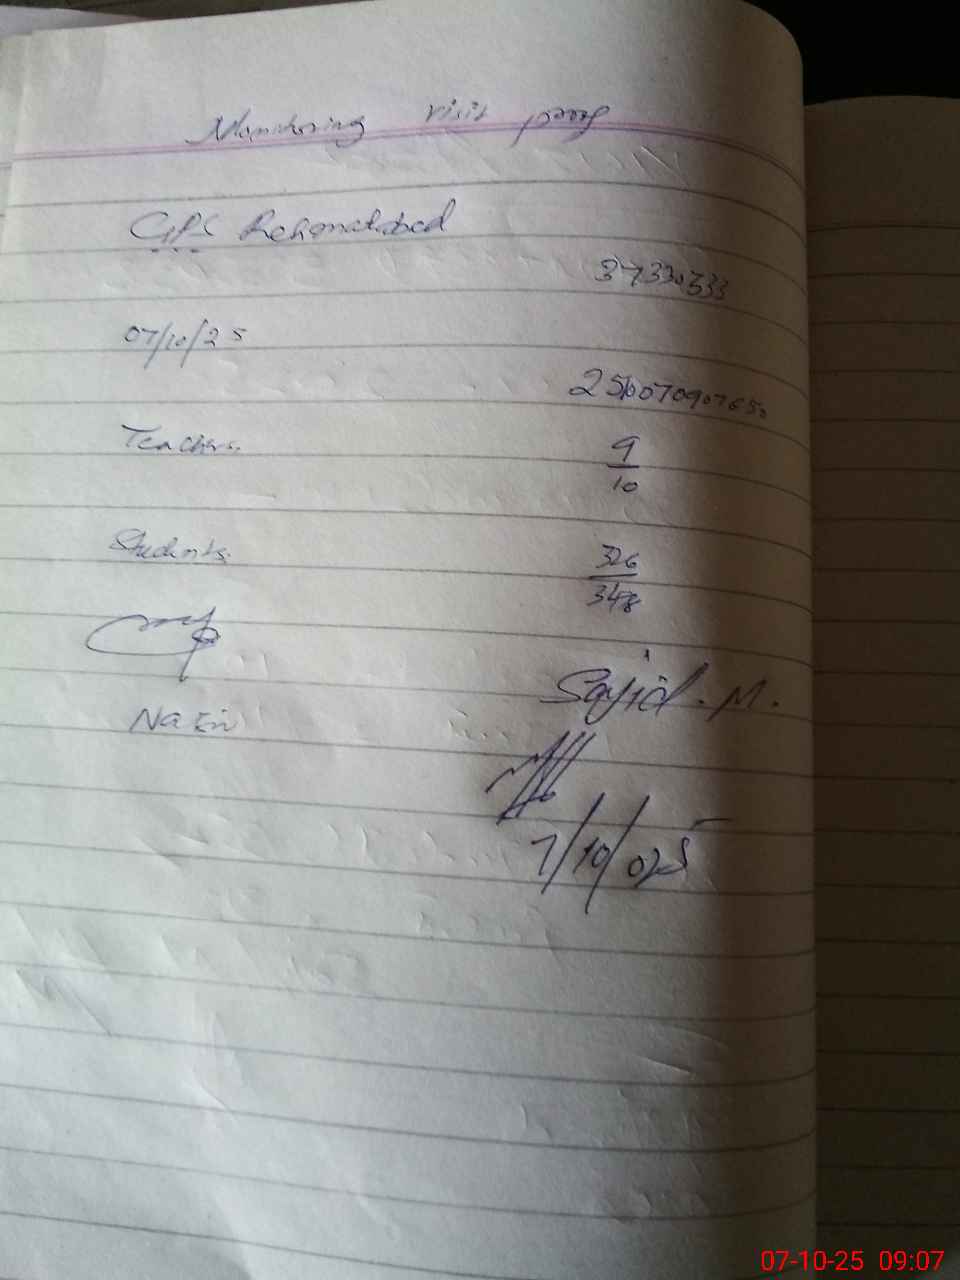 Monitoring visit proof
GPS Rehmatabad
37330333
07/10/25
2510070907650
Teachers.
9
10
Students.
326
348
Sajid . M.
7/10/025
07-10-25 09:07